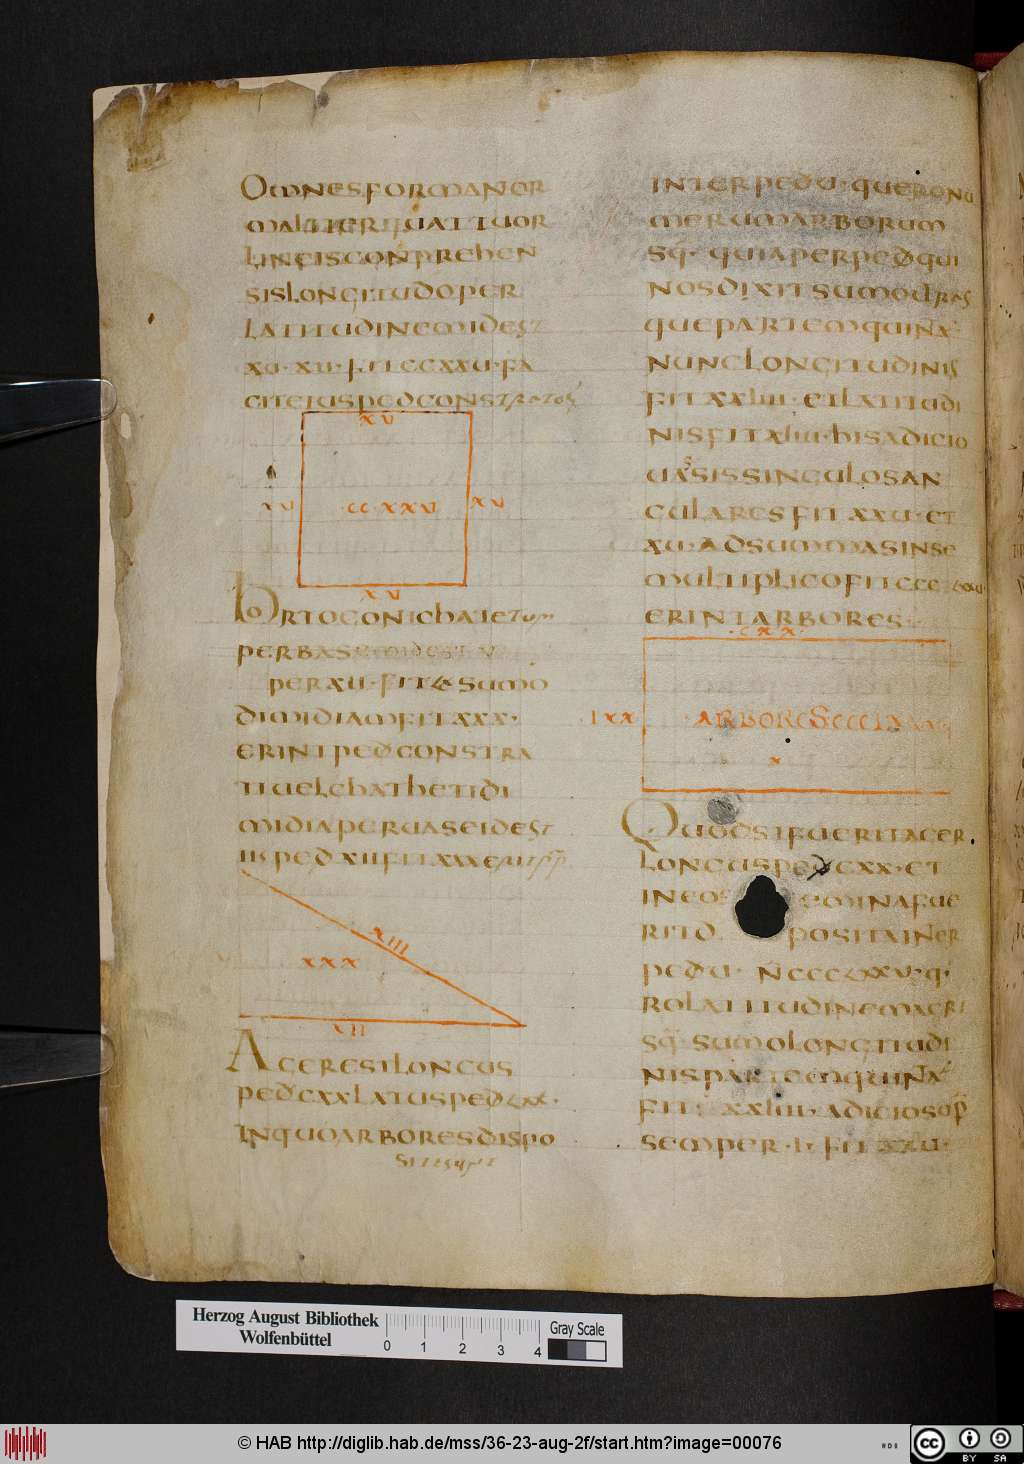 OMNES FORMAN OR
MALITER QUATTUOR
LINEIS CONPREHEN
SIS LONGITUDO PER
LATITUDINEM IDEST
XU· XU· FIT CCXXU· FA
CIT EIUS PED CONSTRATOS
XV
XV
CCXXV
XV
XV
HORTOCONI CHAIETUM
PER BASEM IDEST V
PER XII· FIT LX SUMO
DIMIDIAM FIT XXX·
ERINT PED CONSTRA
TI UEL CHATHETI DI
MIDIA PER UASE IDEST
PED XII FIT XXX
XIII
XXX
XII
AGER ESI LONGUS
PED CXX LATUS PED LXX·
IN QUO ARBORES DISPO
SITESUNT
INTER PED U· QUERO NU
MERUM ARBORUM
SQ· QUIA PER PED QUI
NOS DIXIT SUMO UTRAS
QUE PARTEM QUINTA
NUNC LONGITUDINIS
FIT XXIIII· ET LATITUDI
NIS FIT XIIII· HIS ADICIO
SINGULOS AN
CULARES FIT XXU· ET
XU· AD SUMMAS IN SE
MULTIPLICO FIT CCC
ERINT ARBORES·
CXX
LXX
ARBORES CCCLXX
X
QUOD SI FUERIT AGER
LONGUS PED CXX· ET
IN EO GEMINA FUE
RIT D POSITA INER
PED U· N CCCLXXV· Q·
RO LATITUDINEM AGRI
SQ· SUMO LONGITUDI
NIS PARTEM QUINTA
FIT· XXIIII· ADICIO SUP
SEMPER· I· FIT XXU·
Herzog August Bibliothek
Wolfenbüttel
0 1 2 3 4
Gray Scale
© HAB http://diglib.hab.de/mss/36-23-aug-2f/start.htm?image=00076
cc BY SA